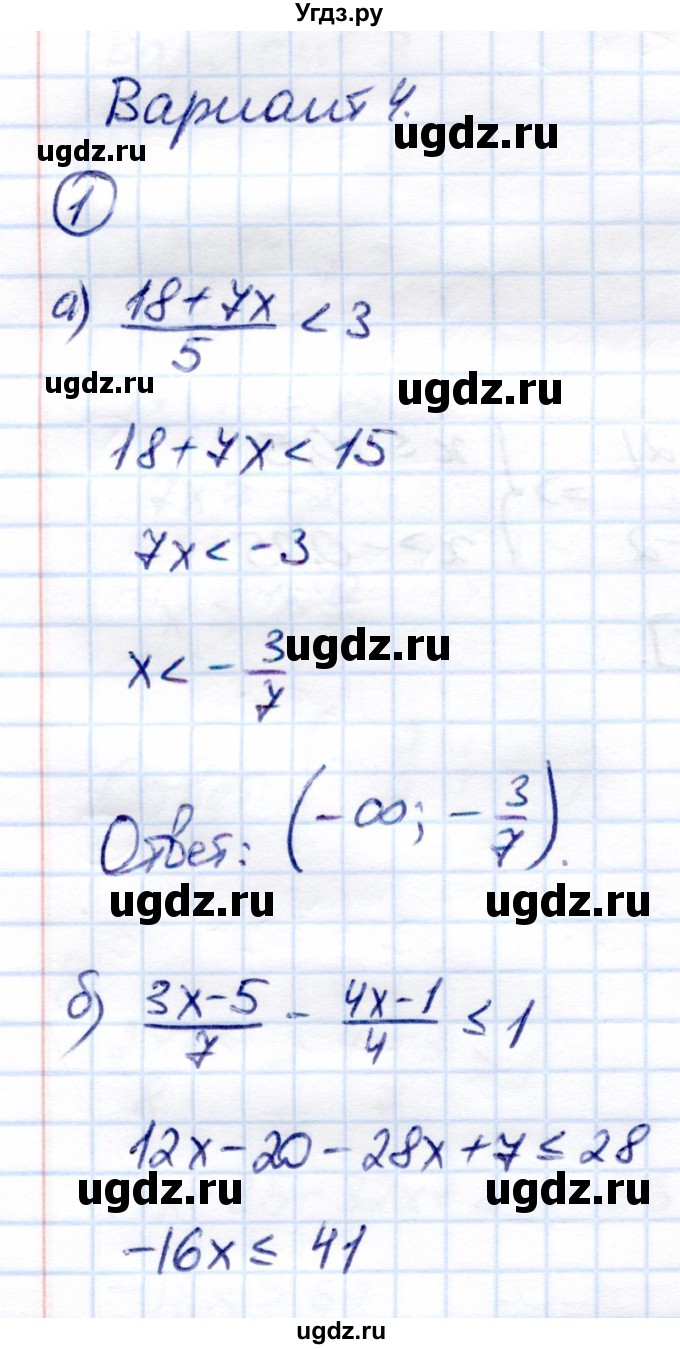 Угдз.ру
Вариант 4.
ugdz.ru
ugdz.ru
1
а) (18+7x)/5 < 3
ugdz.ru
ugdz.ru
18+7x < 15
7x < -3
x < - 3/7
ugdz.ru
Ответ: (-∞; - 3/7).
ugdz.ru
ugdz.ru
б) (3x-5)/7 - (4x-1)/4 ≤ 1
12x-20-28x+7 ≤ 28
ugdz.ru
ugdz.ru
-16x ≤ 41
ugdz.ru